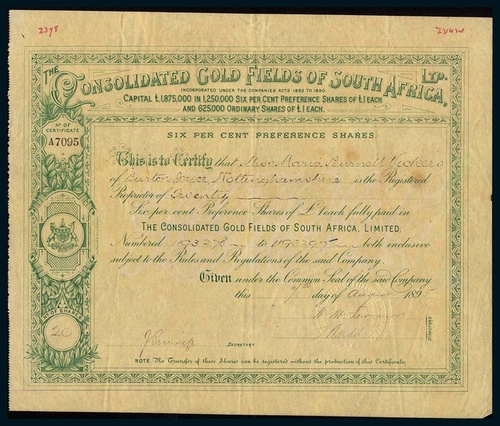 2378
THE CONSOLIDATED GOLD FIELDS OF SOUTH AFRICA, LTD.
INCORPORATED UNDER THE COMPANIES ACTS 1862 TO 1890.
CAPITAL £1,875,000 IN 1,250,000 SIX PER CENT PREFERENCE SHARES OF £1 EACH
AND 625,000 ORDINARY SHARES OF £1 EACH.
No OF CERTIFICATE
A7095
SIX PER CENT PREFERENCE SHARES.
This is to Certify that Miss Maria Burnell
of Burton Joyce Nottinghamshire is the Registered
Proprietor of Seventy
Six per cent Preference Shares of £1 each fully paid in
THE CONSOLIDATED GOLD FIELDS OF SOUTH AFRICA, LIMITED.
Numbered to both inclusive
subject to the Rules and Regulations of the said Company.
Given under the Common Seal of the said Company
this day of August 189
No OF SHARES
SECRETARY
NOTE No Transfer of these Shares can be registered without the production of this Certificate.